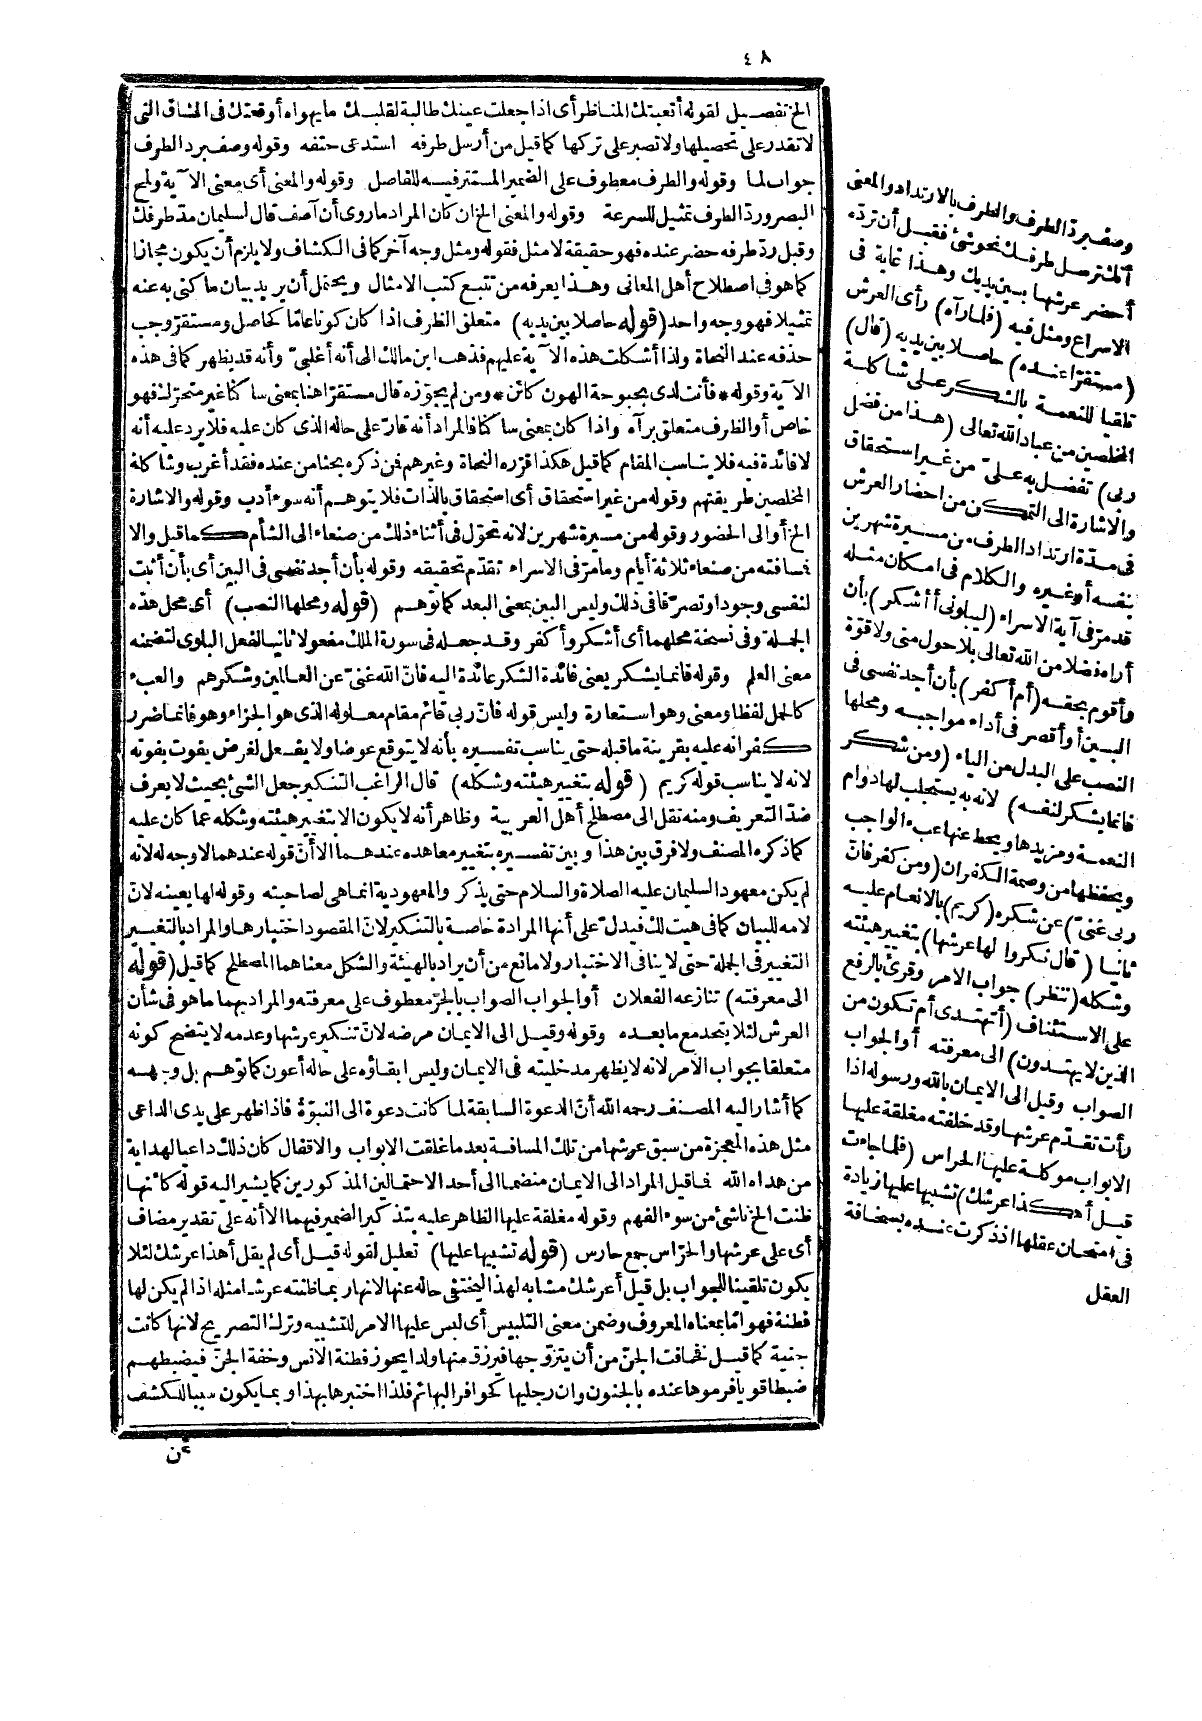 ٤٨
الخ تفصيل لقوله أتعبتك المناظر أى اذا جعلت عينك طالبة لقلبك ما يهواه أوقعتك فى المشاق التى
لا تقدر على تحصيلها ولا تصبر على تركها كما قيل من أرسل طرفه استدعى حتفه وقوله وصف برد الطرف
جواب لما وقوله والطرف معطوف على الضمير المستتر فيه للفاصل وقوله والمعنى أى معنى الآية ولمح
البصر ورد الطرف تمثيل للسرعة وقوله والمعنى الخ ان كان المراد ما روى أن آصف قال لسليمان مد طرفك
وقبل ردّ طرفه حضر عنده فهو حقيقة لا مثل فقوله ومثل وجه آخر كما فى الكشاف ولا يلزم أن يكون مجازا
كما هو فى اصطلاح أهل المعانى وهذا يعرفه من تتبع كتب الامثال ويحتمل أن يريد بيان ما كنى به عنه
تمثيلا فهو وجه واحد (قوله حاصلا بين يديه) متعلق الظرف اذا كان كونا عامّا كحاصل ومستقرّ وجب
حذفه عند النحاة ولذا أشكلت هذه الآية عليهم فذهب ابن مالك الى أنه أغلبىّ وأنه قد يظهر كما فى هذه
الآية وقوله * فأنت لدى بحبوحة الهون كائن * ومن لم يجوّزه قال مستقرّا هنا بمعنى ساكنا غير متحرّك فهو
خاص أو الظرف متعلق برآه واذا كان بمعنى ساكنا فالمراد أنه قارّ على حاله الذى كان عليه فلا يرد عليه أنه
لا فائدة فيه فلا يناسب المقام كما قيل هكذا قرّره النحاة وغيرهم فمن ذكره بحثا من عنده فقد أغرب وشاكلة
المخلصين طريقتهم وقوله من غير استحقاق أى استحقاق بالذات فلا يتوهم أنه سوء أدب وقوله والاشارة
الخ أو الى الحضور وقوله من مسيرة شهرين لانه تحوّل فى أثناء ذلك من صنعاء الى الشأم كما قيل والا
فسافته من صنعاء ثلاثة أيام وما مرّ فى الاسراء تقدّم تحقيقه وقوله بأن أجد نفسى فى البين أى بأن أثبت
لنفسى وجودا وتصرّفا فى ذلك وليس البين بمعنى البعد كما توهم (قوله ومحلها النصب) أى محل هذه
الجملة وفى نسخة محلهما أى أشكر وأكفر وقد جعله فى سورة الملك مفعولا ثانيا لفعل البلوى لتضمنه
معنى العلم وقوله فانما يشكر يعنى فائدة الشكر عائدة اليه فانّ الله غنىّ عن العالمين وشكرهم والعبء
كالحمل لفظا ومعنى وهو استعارة وليس قوله فانّ ربى قائم مقام معلوله الذى هو الجزاء وهو فانما ضرر
كفرانه عليه بقرينة ما قبله حتى يناسب تفسيره بأنه لا يتوقع عوضا ولا يفعل لغرض يفوت بفوته
لانه لا يناسب قوله كريم (قوله بتغيير هيئته وشكله) قال الراغب التنكير جعل الشئ بحيث لا يعرف
ضدّ التعريف ومنه نقل الى مصطلح أهل العربية وظاهر أنه لا يكون الا بتغيير هيئته وشكله عما كان عليه
كما ذكره المصنف ولا فرق بين هذا وبين تفسيره بتغيير معاهده عندهما الا أنّ قوله عندهما لا وجه له لانه
لم يكن معهود السليمان عليه الصلاة والسلام حتى يذكر والمعهودية انما هى لصاحبته وقوله لها يعينه لانّ
لامه للبيان كما فى هيت لك فيدل على أنها المرادة خاصة بالتنكير لانّ المقصود اختبارها والمراد بالتغيير
التغيير فى الجملة حتى لا ينافى الاختبار ولا مانع من أن يراد بالهيئة والشكل معناهما المصطلح كما قيل (قوله
الى معرفته) تنازعه الفعلان أو الجواب الصواب بالجرّ معطوف على معرفته والمراد بهما ما هو فى شأن
العرش لئلا يتحد مع ما بعده وقوله وقيل الى الايمان مرضه لانّ تنكير عرشها وعدمه لا يتضح كونه
متعلقا بجواب الامر لانه لا يظهر مدخليته فى الايمان وليس ابقاؤه على حاله أعون كما توهم بل وجهه
كما أشار اليه المصنف رحمه الله أنّ الدعوة السابقة لما كانت دعوة الى النبوّة فاذا ظهر على يدى الداعى
مثل هذه المعجزة من سبق عرشها من تلك المسافة بعد ما غلقت الابواب والاقفال كان ذلك داعيا لهداية
من هداه الله فما قيل المراد الى الايمان منضما الى أحد الاحتمالين المذكورين كما يشير اليه قوله كأنها
ظنت الخ ناشئ من سوء الفهم وقوله مغلقة عليها الظاهر عليه بتذكير الضمير فيهما الا أنه على تقدير مضاف
أى على عرشها والحرّاس جمع حارس (قوله تشبيها عليها) تعليل لقوله قيل أى لم يقل أهذا عرشك لئلا
يكون تلقينا للجواب بل قيل أعرشك مشابه لهذا ليختفى حاله عنها لانها ربما ظنته عرشا مثله اذا لم يكن لها
فطنة فهو اما بمعناه المعروف وضمن معنى التلبيس أى لبس عليها الامر للتشبيه وترك التصريح لانها كانت
جنية كما قيل نخافت الجنّ من أن يتزوّجها فيرزق منها ولدا يحوز فطنة الانس وخفة الجنّ فيضبطهم
ضبطا قويا فرموها عنده بالجنون وان رجليها كحوافر البهائم فلذا اختبرها بهذا وبما يكون سببا للكشف
عن
وصف برد الطرف والطرف بالارتداد والمعنى
أنك ترسل طرفك نحو شئ فقبل أن تردّه
أحضر عرشها بين يديك وهذا غاية فى
الاسراع ومثل فيه (فلما رآه) رأى العرش
(مستقرّا عنده) حاصلا بين يديه (قال)
تلقيا للنعمة بالشكر على شاكلة
المخلصين من عباد الله تعالى (هذا من فضل
ربى) تفضل به علىّ من غير استحقاق
والاشارة الى التمكن من احضار العرش
فى مدة ارتداد الطرف من مسيرة شهرين
بنفسه أو غيره والكلام فى امكان مثله
قد مرّ فى آية الاسراء (ليبلونى أأشكر) بأن
أراه فضلا من الله تعالى بلا حول منى ولا قوّة
وأقوم بحقه (أم أكفر) بأن أجد نفسى فى
البين أو أقصر فى أداء مواجبه ومحلها
النصب على البدل من الياء (ومن شكر
فانما يشكر لنفسه) لانه به يستجلب لها دوام
النعمة ومزيدها ويحط عنها عبء الواجب
ويحفظها من وصمة الكفران (ومن كفر فانّ
ربى غنىّ) عن شكره (كريم) بالانعام عليه
ثانيا (قال نكروا لها عرشها) بتغيير هيئته
وشكله (ننظر) جواب الامر وقرئ بالرفع
على الاستئناف (أتهتدى أم تكون من
الذين لا يهتدون) الى معرفته أو الجواب
الصواب وقيل الى الايمان بالله ورسوله اذا
رأت تقدّم عرشها وقد خلفته مغلقة عليها
الابواب موكلة عليها الحراس (فلما جاءت
قيل أهكذا عرشك) تشبيها عليها زيادة
فى امتحان عقلها اذ ذكرت عنده بسخافة
العقل